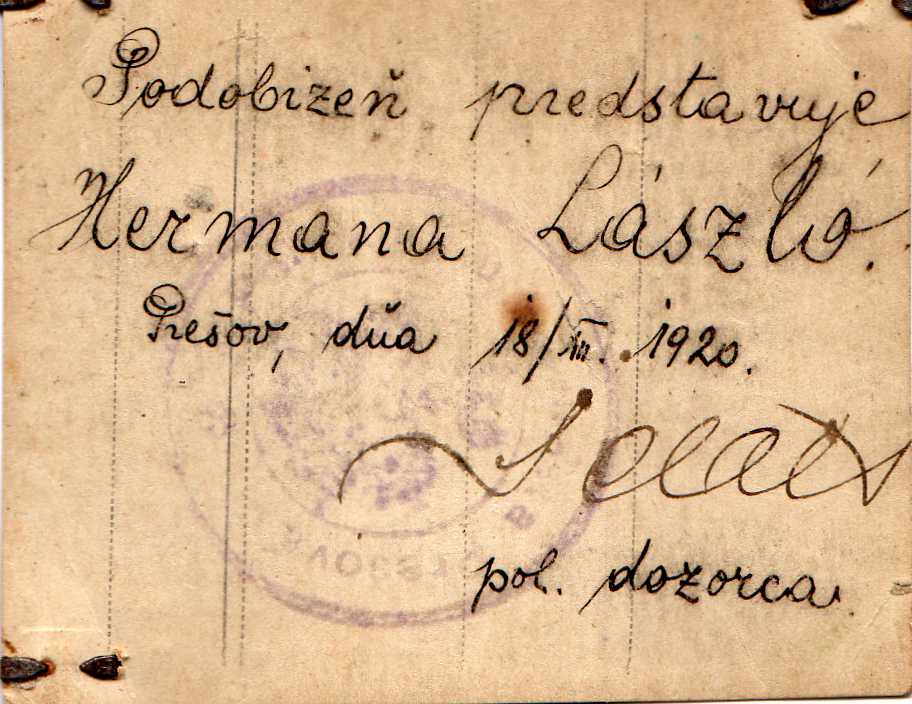 Podobizeň predstavuje
Hermana László.
Prešov, dňa 18/III. 1920.
pol. dozorca.